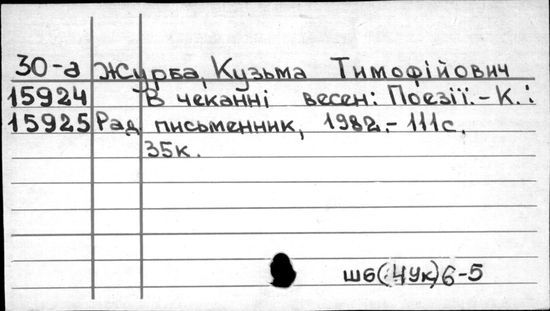 30-а Журба, Кузьма Тимофійович
15924 В чеканні весен: Поезії.- К.:
15925 Рад. письменник, 1982.- 111с.
35к.
Ш6(4Ук)6-5